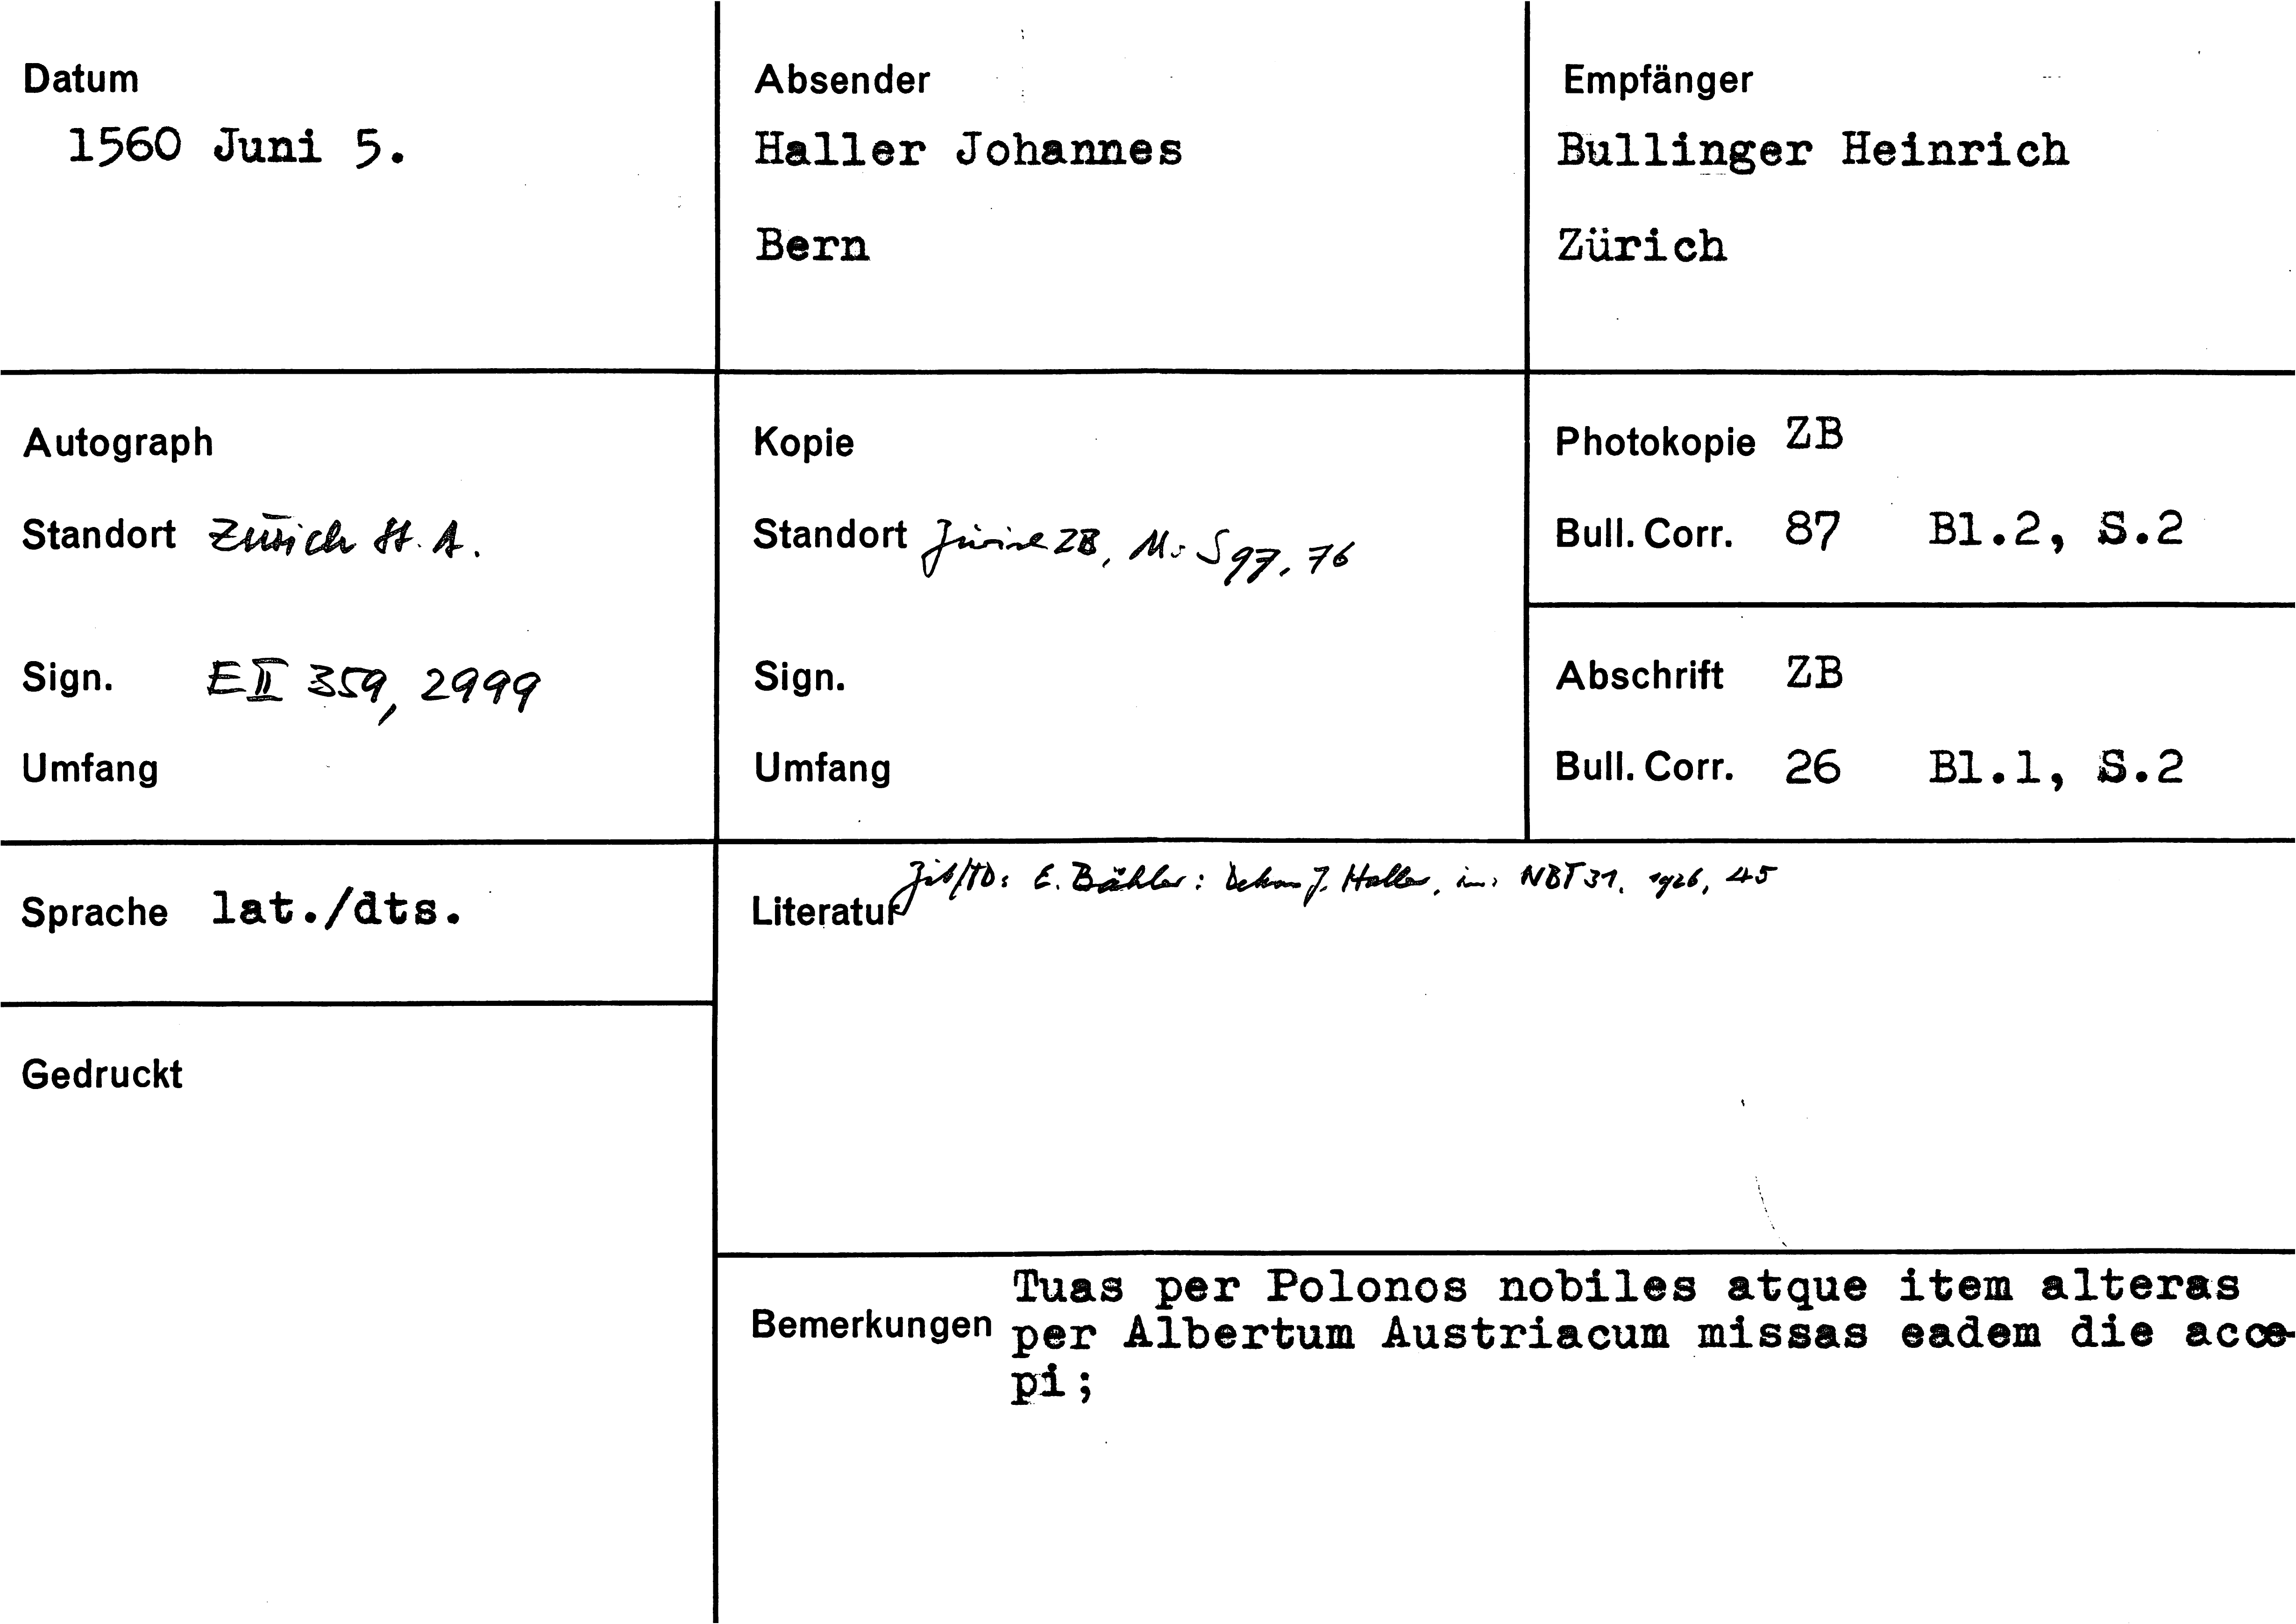 Datum
1560 Juni 5.
Absender
Haller Johannes
Bern
Empfänger
Bullinger Heinrich
Zürich
Autograph
Standort Zürich St. A.
Sign. E II 359, 2999
Umfang
Kopie
Standort Zürich ZB, Ms S 97, 76
Sign.
Umfang
Photokopie ZB
Bull. Corr. 87 Bl.2, S.2
Abschrift ZB
Bull. Corr. 26 Bl.1, S.2
Sprache lat./dts.
Gedruckt
Zit/TD: E. Bähler: Dekan J. Haller, in: NBT 31, 1926, 45
Literatur
Tuas per Polonos nobiles atque item alteras
Bemerkungen per Albertum Austriacum missas eadem die acce-
pi;